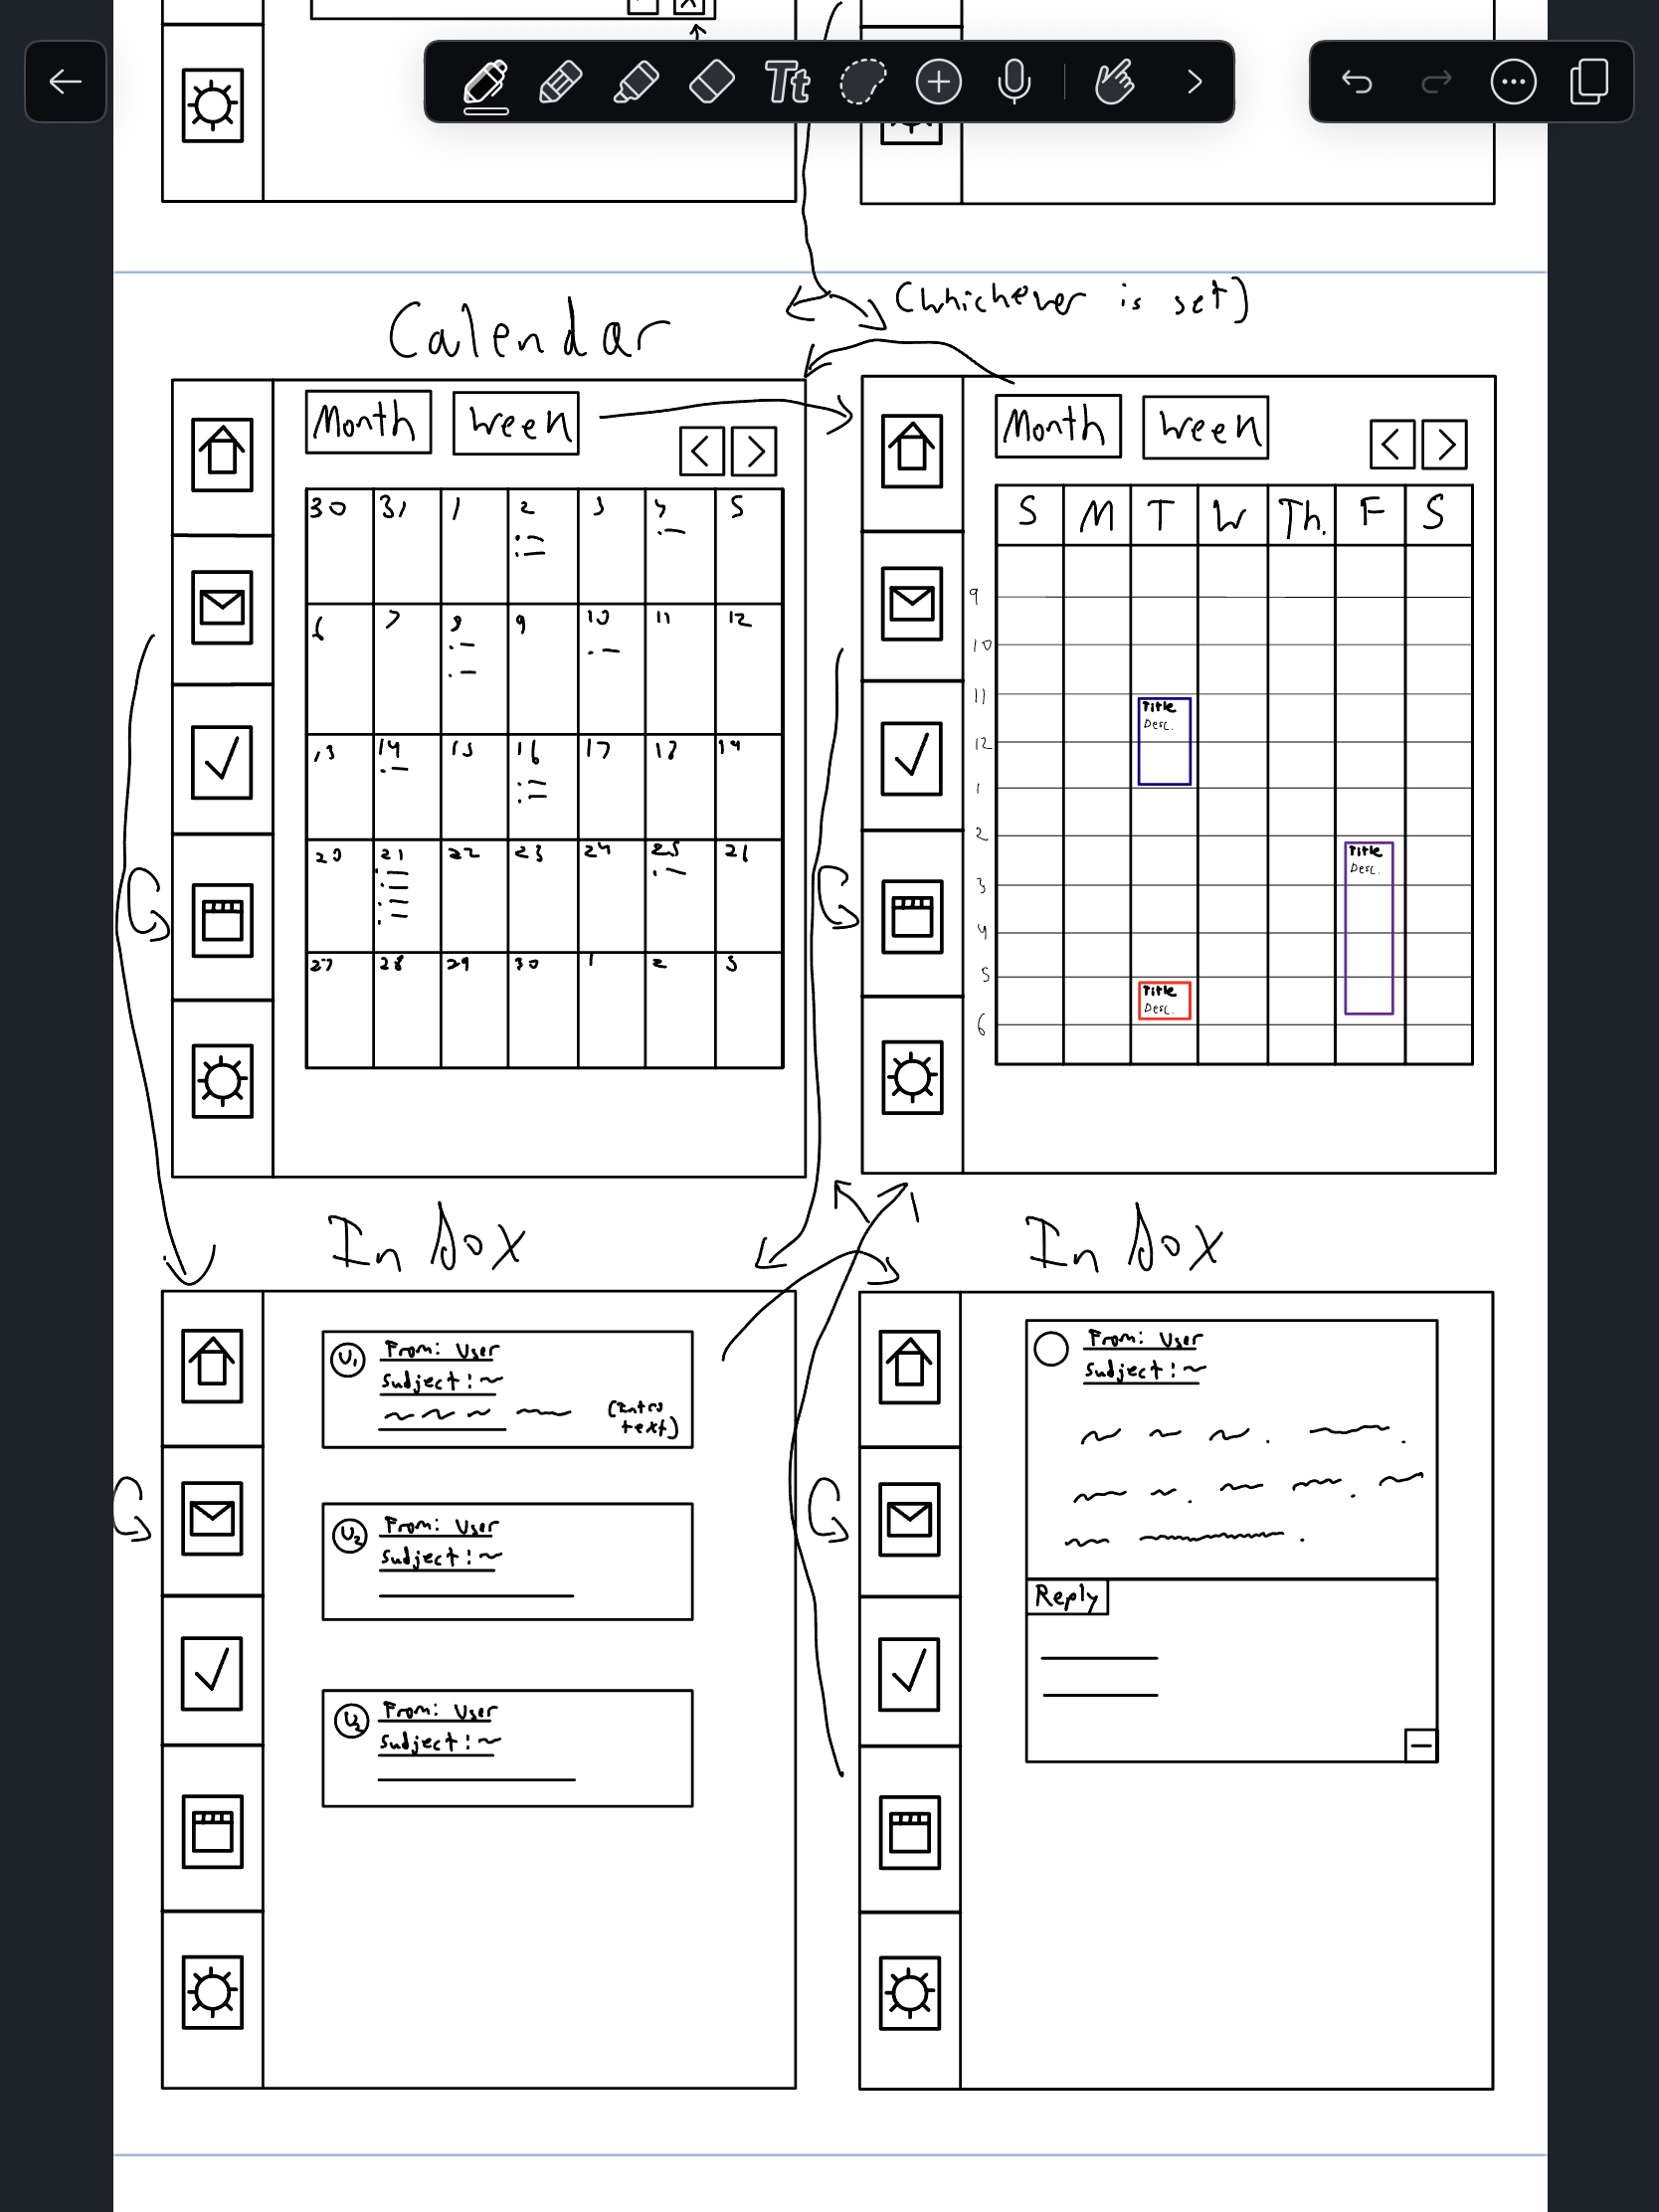 Tt
(Whichever is set)
Calendar
Month Week
< >
30 31 1 2 3 4 5
6 7 8 9 10 11 12
13 14 15 16 17 18 19
20 21 22 23 24 25 26
27 28 29 30 1 2 3
Month Week
< >
S M T W Th. F S
9
10
11
Title
Desc.
12
1
2
Title
Desc.
3
4
5
Title
Desc.
6
Inbox
U1 From: User
Subject: ~
(Intro
text)
U2 From: User
Subject: ~
From: User
Subject: ~
Inbox
From: User
Subject: ~
Reply